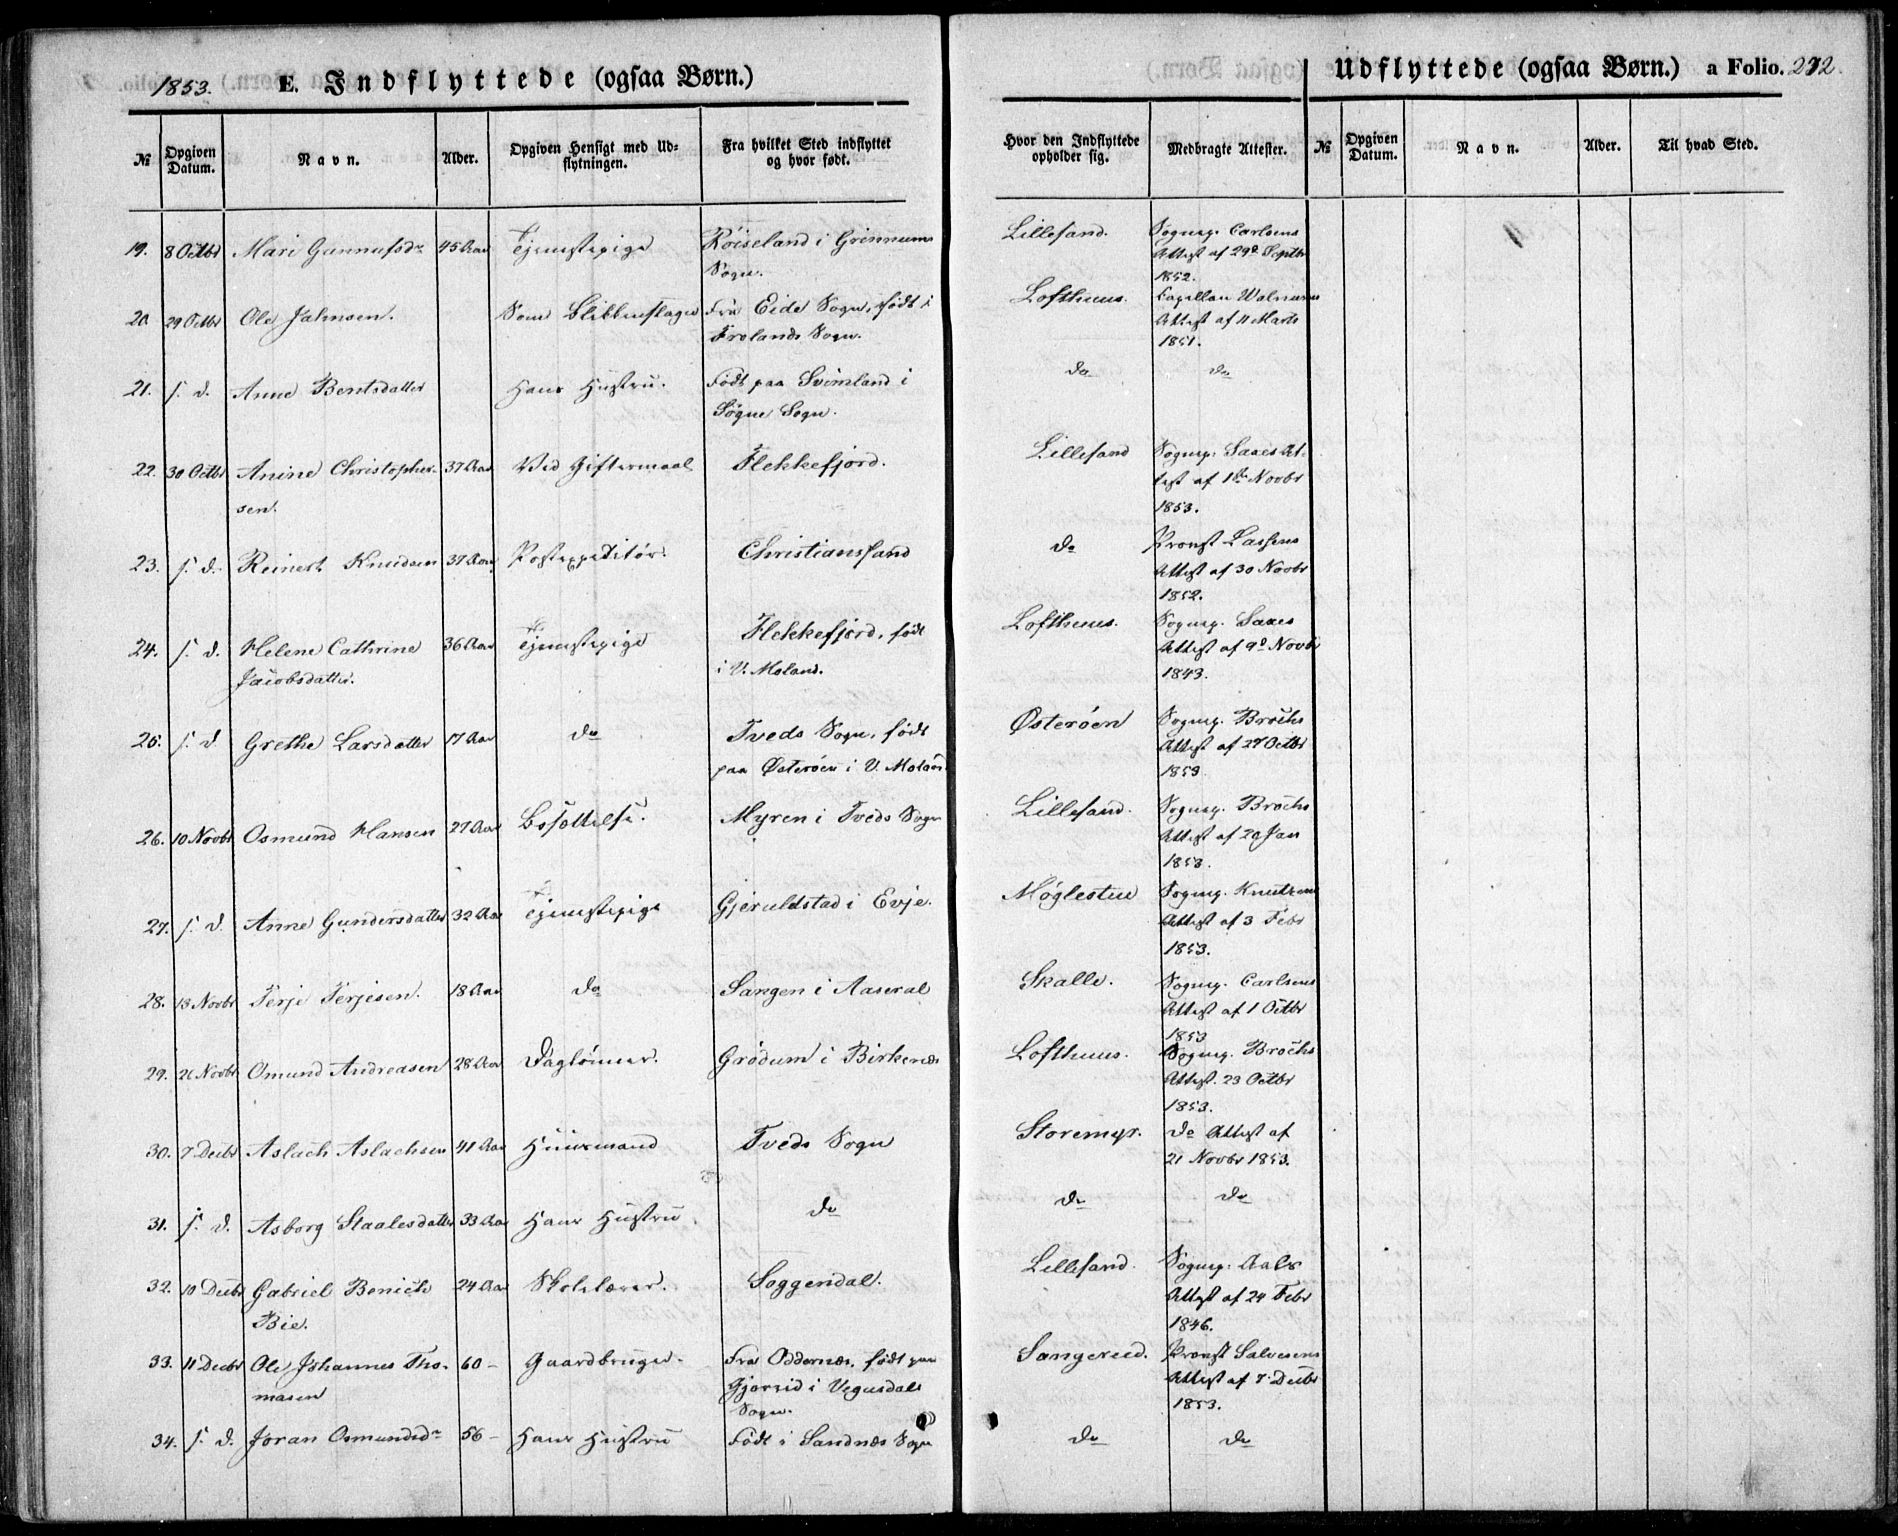 1853. E. Indflyttede (ogsaa Børn.)
Udflyttede (ogsaa Børn.) a Folio. 272.
№ Opgiven Datum. Navn. Alder. Opgiven Hensigt med Ud- Fra hvilket Sted indflyttet
flytningen. og hvor født.
Hvor den Indflyttede Medbragte Attester. № Opgiven Datum. Navn. Alder. Til hvad Sted.
opholder sig.
19. 8 Octbr Mari Gunnufsdr 45 Aar Tjenestepige Røiseland i Grinnums Lillesand. Sognep. Carlsens
Sogn. Attest af 29d Septbr
1852.
20 29 Octbr Ole Jahnsen. Som Blikkenslager Fra Eide Sogn, født i Lofthuus. Capellan
Frolands Sogn. Attest af 11 Marts
1851.
21. s. d. Anne Berntsdatter Hans Hustru. Født paa i do do
Søgne Sogn.
22. 30 Octbr Anine Christopher- 37 Aar Ved Giftermaal Flekkefjord. Lillesand Sognep. Saaes At-
sen. test af 1de Novbr
1853.
23. s. d. Reinert Knudsen 37 Aar Postexpeditør. Christianssand do Provst Lassens
Attest af 30 Novbr
1852.
24. s. d. Helene Cathrine 36 Aar Tjenestepige Flekkefjord, født Lofthuus. Sognep. Saaes
Jacobsdatter. i V. Moland. Attest af 9d Novbr
1843.
25. s. d. Grethe Larsdatter 17 Aar do Tveds Sogn, født Østerøen Sognep. Brochs
paa Østerøen i V. Moland Attest af 27 Octbr
1853.
26. 10 Novbr Osmund Hansen 27 Aar Bosættelse. Myren i Tveds Sogn Lillesand. Sognep. Brochs
Attest af 20 Jan
1853.
27. s. d. Anne Gundersdatter 32 Aar Tjenestepige Gjeruldstad i Evje. Møglestue Sognep. Knutzens
Attest af 3 Febr
1853.
28. 13 Novbr Terje Terjesen. 18 Aar do Sangen i Aaseral Skalle. Sognep. Carlsens
Attest af 1 Octbr
1853
29. 21 Novbr Omund Andreasen 28 Aar Daglønner. Grødum i Birkenæs Lofthuus. Sognep. Brochs
Attest. 23 Octbr
1853.
30. 7 Decbr Aslach Aslachsen 41 Aar Huusmand Tveds Sogn Storemyr. do Attest af
21 Novbr 1853.
31. s. d. Asborg Staalesdatter 33 Aar Hans Hustru do do do
32. 10 Decbr Gabriel Benich 24 Aar Skolelærer. Soggendal. Lillesand. Sognep. Aals
Bie. Attest af 24 Febr
1846.
33. 11 Decbr Ole Johannes Tho- 60 – Gaardbruger. Fra Oddernæs, født paa Sangereed. Provst Salvesens
masen i Vegusdals Attest af 7 Decbr
Sogn. 1853.
34. s. d. Joran Osmundsdr 56 – Hans Hustru Født i Sandnæs Sogn do do